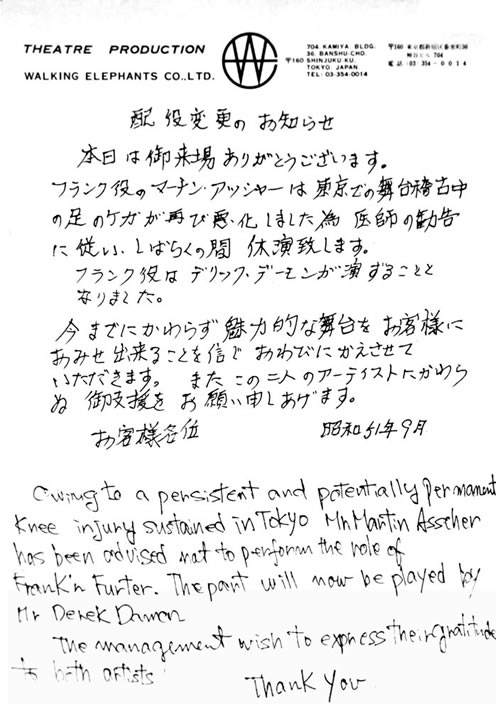 THEATRE PRODUCTION
WALKING ELEPHANTS CO.,LTD.
WEC
704 KAMIYA. BLDG.
36. BANSHU-CHO.
〒160 SHINJUKU-KU.
TOKYO. JAPAN.
TEL: 03-354-0014
〒160 東京都新宿区番衆町36
神谷ビル 704
電話:03 354-0014
配役変更の お知らせ
本日は御来場ありがとうございます。
フランク役のマーチン・アッシャーは東京での舞台稽古中
の足のケガが再び悪化しました為 医師の勧告
に従い、しばらくの間 休演致します。
フランク役は デリック・デーモンが演ずることと
なりました。
今までにかわらず魅力的な舞台をお客様に
おみせ出来ることを信じ おわびにかえさせて
いただきます。 また この二人のアーティストにかわら
ぬ 御支援を お願い申しあげます。
お客様各位 昭和51年9月
Owing to a persistent and potentially permanent
Knee injury sustained in Tokyo Mr Martin Asscher
has been advised not to perform the role of
Frank'n Furter. The part will now be played by
Mr Derek Damon
The management wish to express their gratitude
to both artists
Thank You